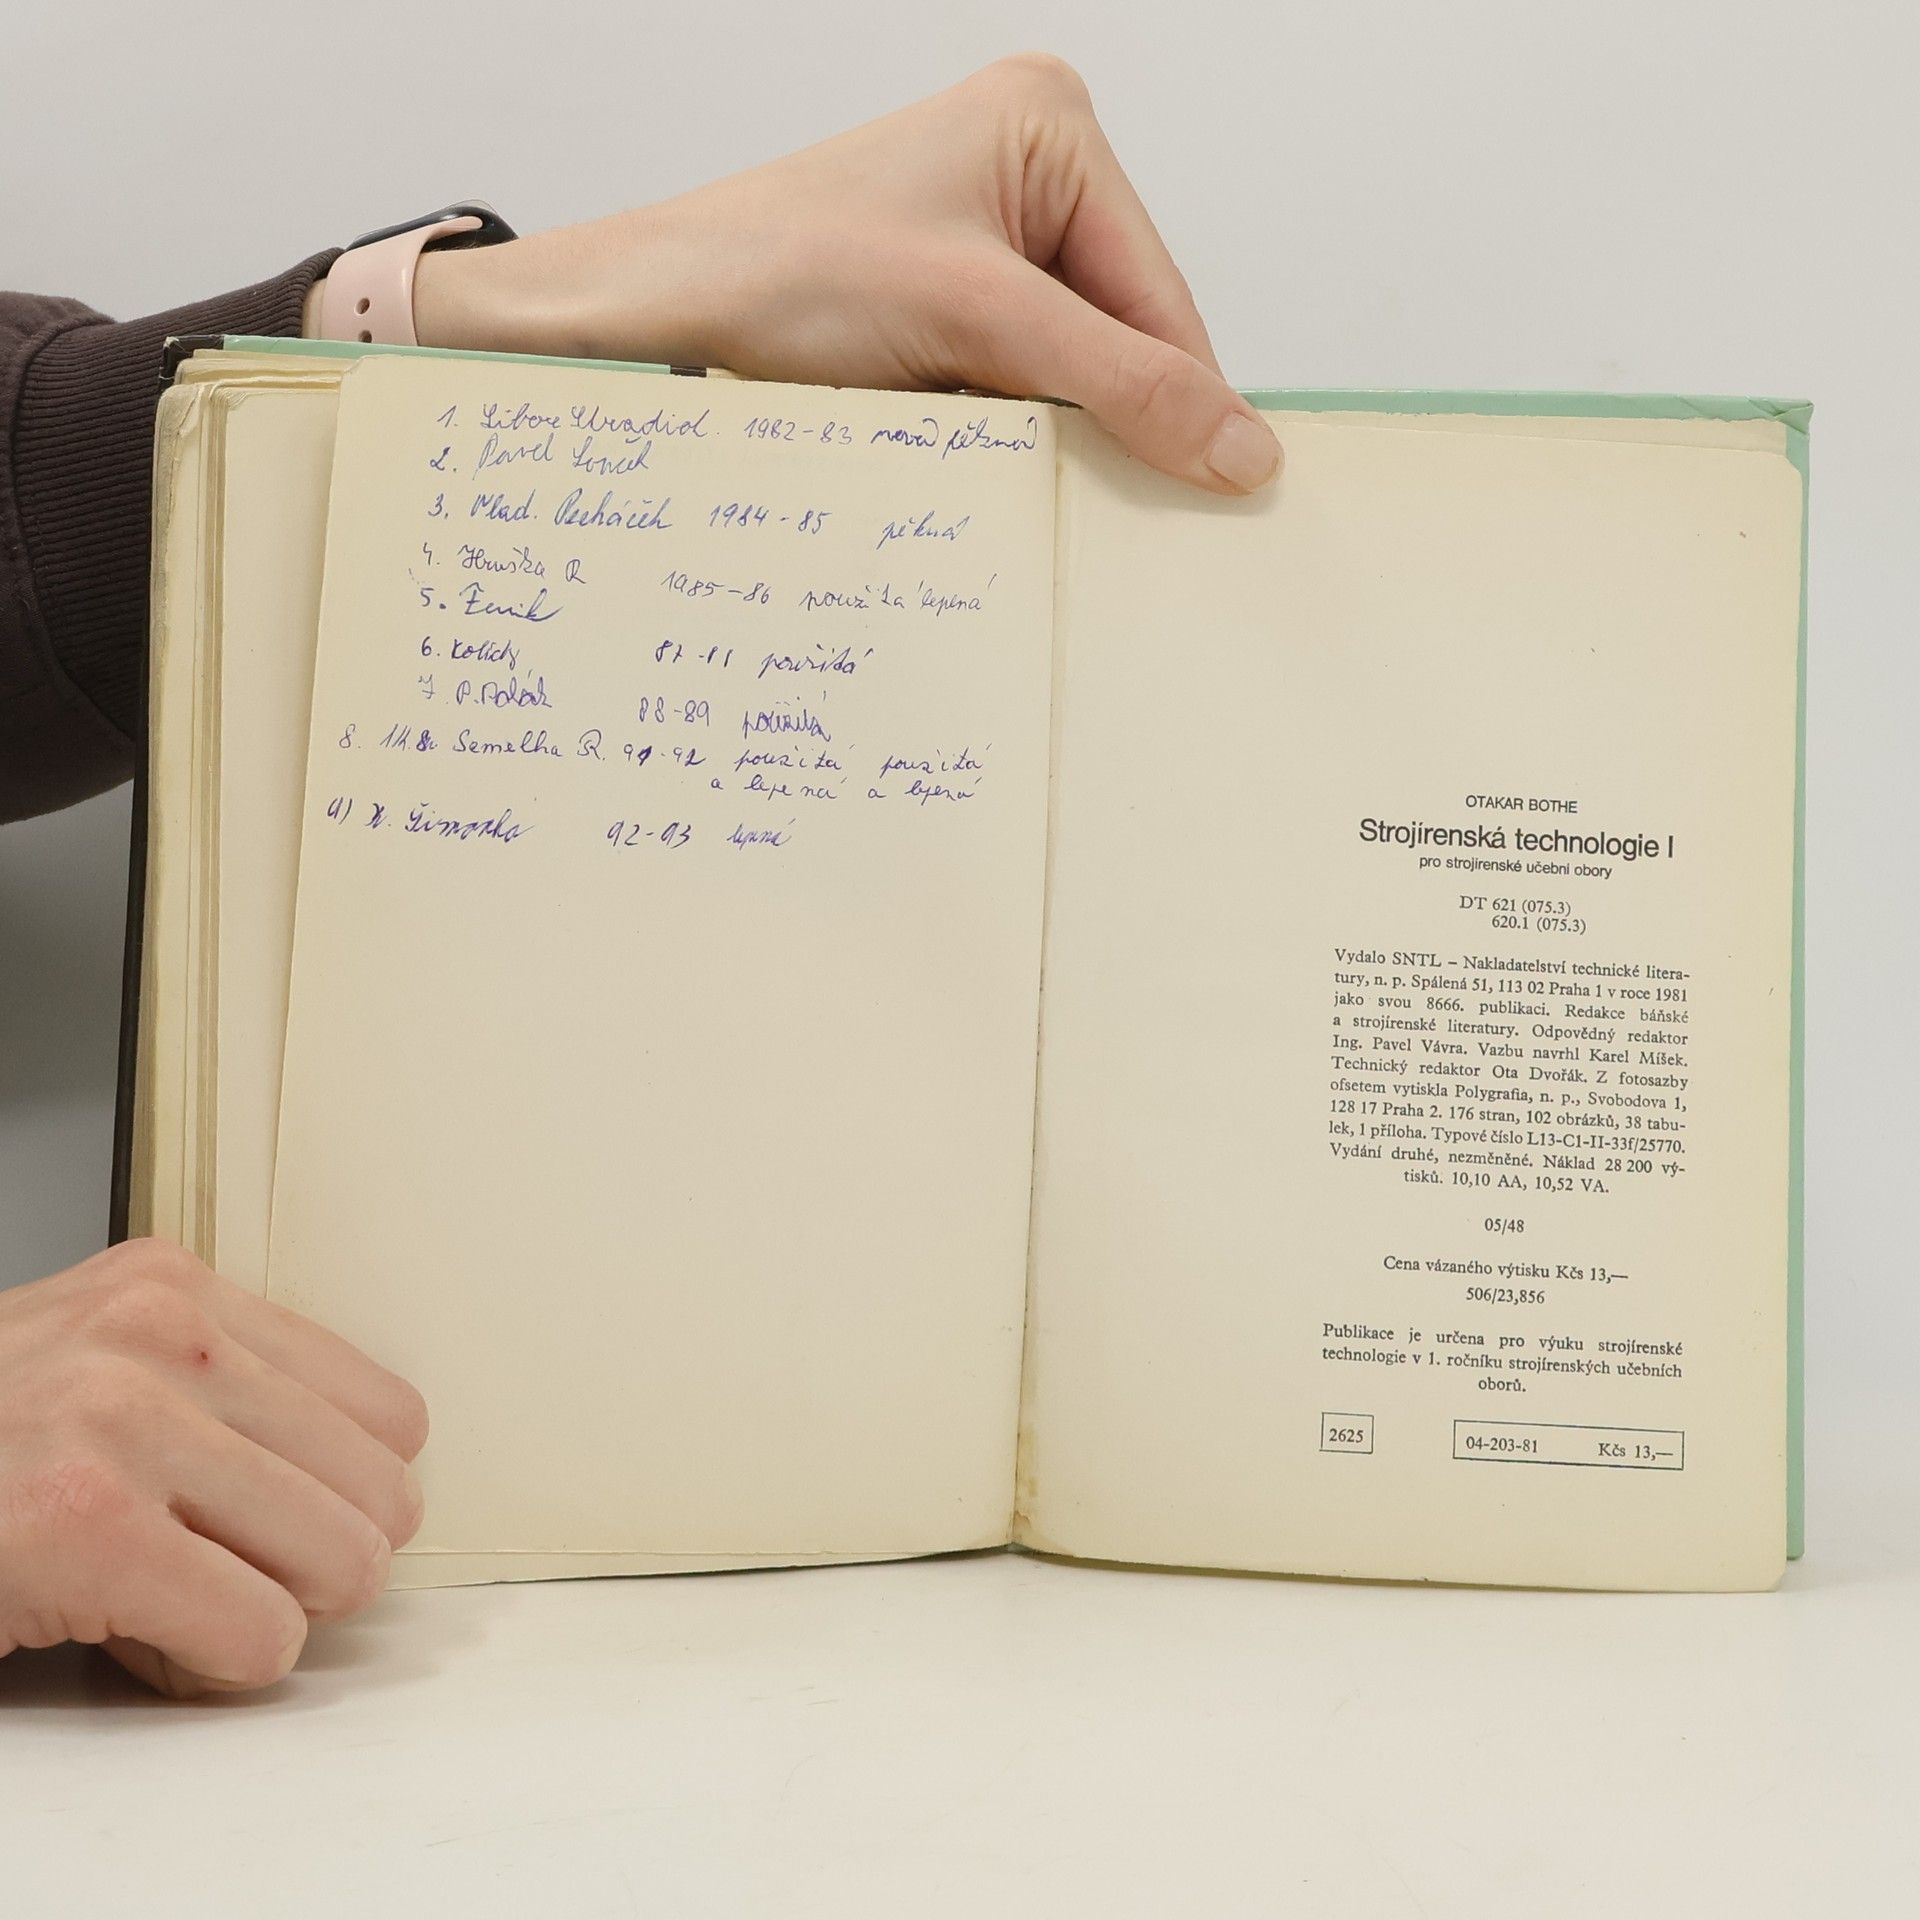 1. Libor 1982-83 nová pěkná
2. Pavel
3. Vlad. Pecháček 1984-85 pěkná
4. Hruška R 1985-86 použitá lepená
5.
6. 87- použitá
7 P. Polák 88-89 použitá
8. Semelka R. 91-92 použitá použitá
a lepená a lepená
9) Šimonka 92-93 lepená
OTAKAR BOTHE
Strojírenská technologie I
pro strojírenské učební obory
DT 621 (075.3)
620.1 (075.3)
Vydalo SNTL – Nakladatelství technické litera-
tury, n. p. Spálená 51, 113 02 Praha 1 v roce 1981
jako svou 8666. publikaci. Redakce báňské
a strojírenské literatury. Odpovědný redaktor
Ing. Pavel Vávra. Vazbu navrhl Karel Míšek.
Technický redaktor Ota Dvořák. Z fotosazby
ofsetem vytiskla Polygrafia, n. p., Svobodova 1,
128 17 Praha 2. 176 stran, 102 obrázků, 38 tabu-
lek, 1 příloha. Typové číslo L13-C1-II-33f/25770.
Vydání druhé, nezměněné. Náklad 28 200 vý-
tisků. 10,10 AA, 10,52 VA.
05/48
Cena vázaného výtisku Kčs 13,—
506/23,856
Publikace je určena pro výuku strojírenské
technologie v 1. ročníku strojírenských učebních
oborů.
2625
04-203-81 Kčs 13,—